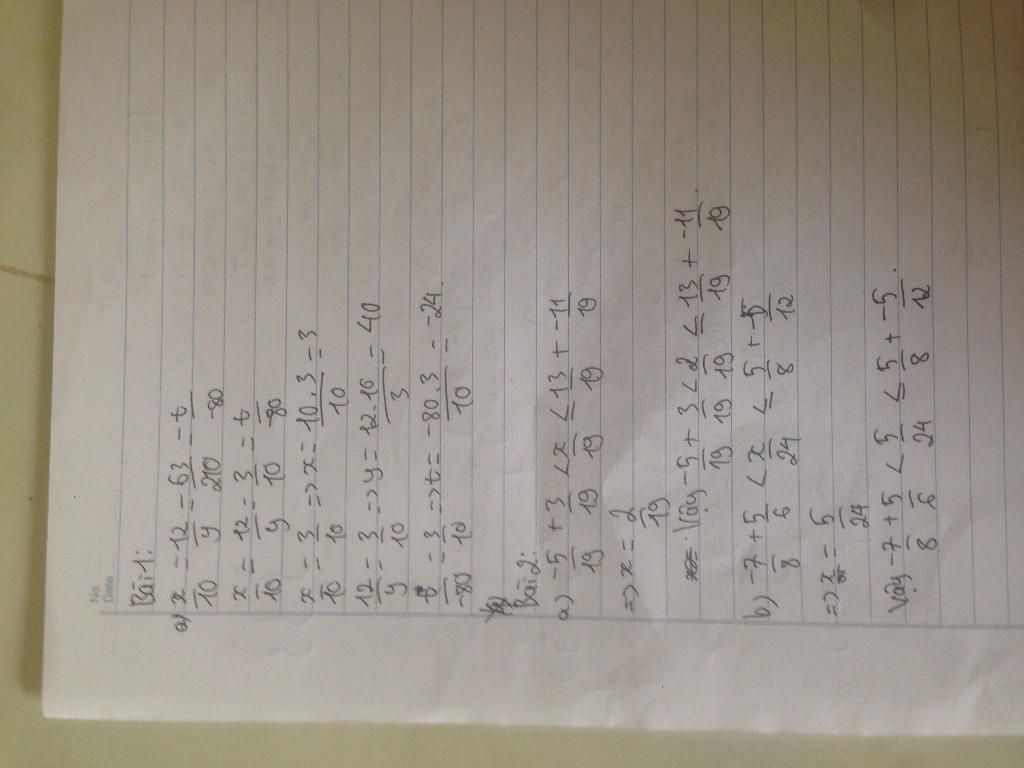 No.
Date
Bài 1:
a) x/10 = 12/y = 63/210 = t/-80
x/10 = 12/y = 3/10 = t/-80
x/10 = 3/10 => x = 10.3/10 = 3
12/y = 3/10 => y = 12.10/3 = 40
t/-80 = 3/10 => t = -80.3/10 = -24.
Bài 2:
a) -5/19 + 3/19 < x/19 ≤ 13/19 + -11/19
=> x = 2/19
Vậy -5/19 + 3/19 < 2/19 ≤ 13/19 + -11/19.
b) -7/8 + 5/6 < x/24 ≤ 5/8 + -5/12
=> x = 5/24
Vậy -7/8 + 5/6 < 5/24 ≤ 5/8 + -5/12.